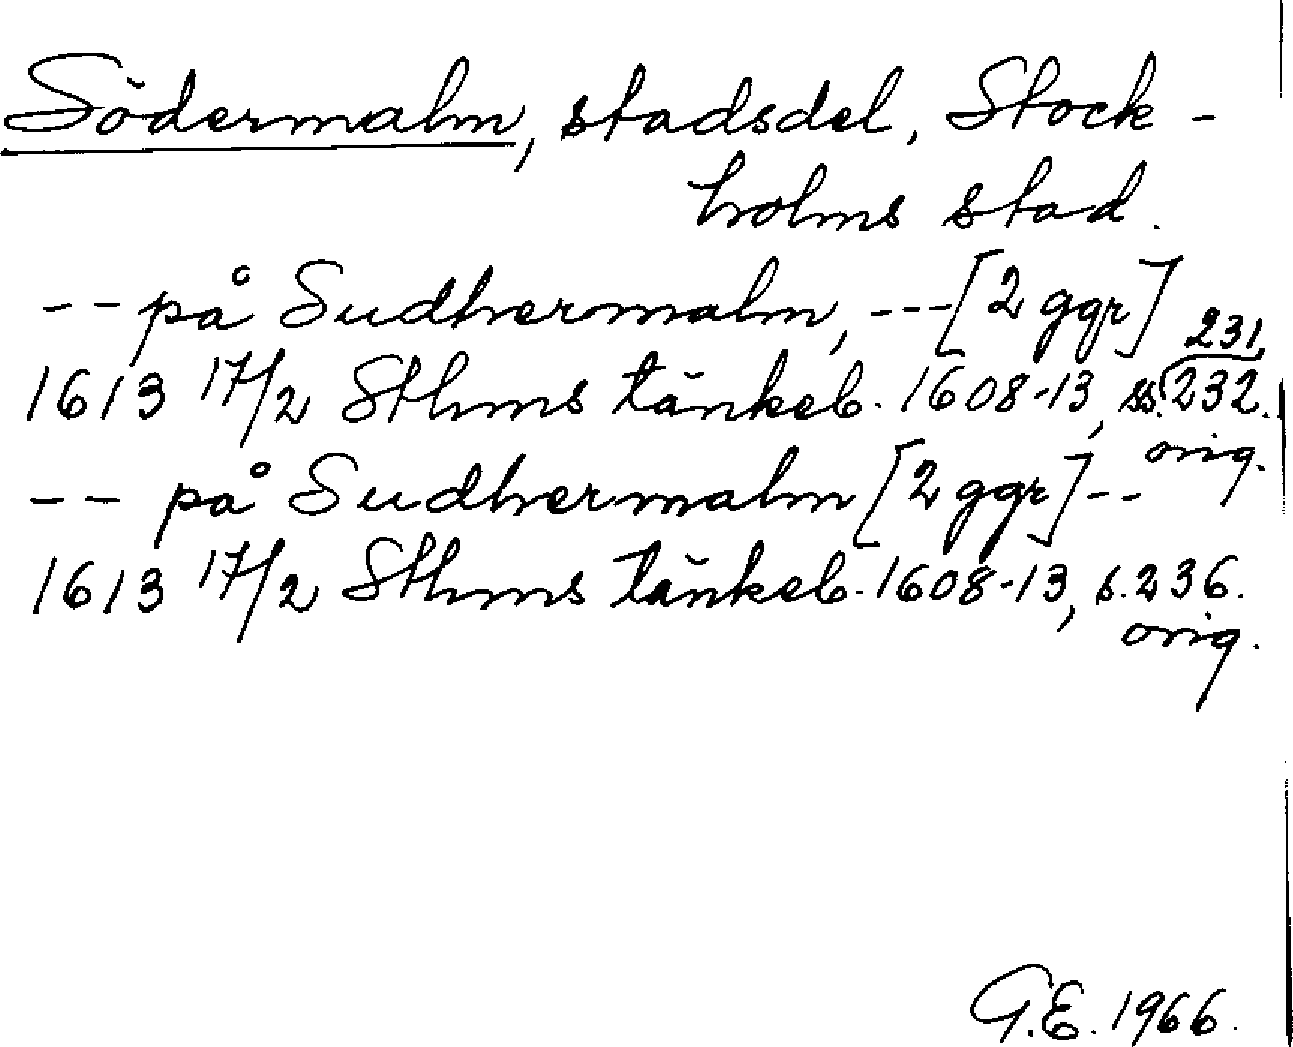 Södermalm, stadsdel, Stock-
holms stad.
-- på Sudhermalm, --- [2 ggr]
1613 17/2 Sthms tänkeb. 1608-13, ss. 231, 232.
orig.
-- på Sudhermalm [2 ggr] --
1613 17/2 Sthms tänkeb. 1608-13, s. 236.
orig.
G.E. 1966.